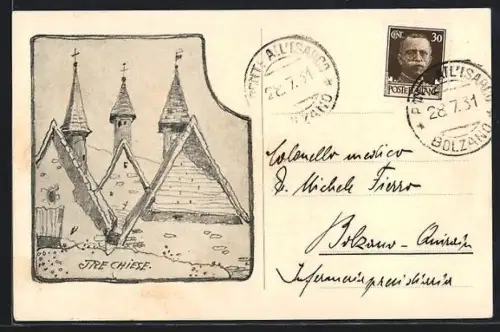 TRE CHIESE.
PONTE ALL'ISARCO
28.7.31
BOLZANO
CENT. 30
POSTE ITALIANE
ALL'ISARCO
28.7.31
* BOLZANO *
Colonello medico
D. Michele Fierro
Bolzano -